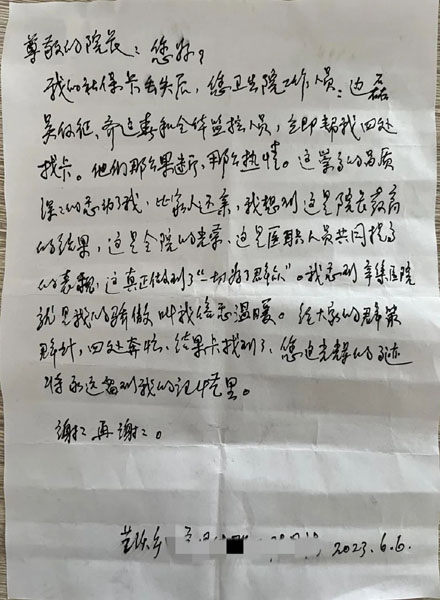 尊敬的院长：您好！
我的社保卡丢失后，您卫生院工作人员：边磊
吴仪征、齐连春和全体监控人员，立即帮我四处
找卡。他们那么果断，那么热情。这崇高的品质
深深的感动了我，比家人还亲，我想到这是院长教育
的结果，这是全院的光荣，这是医职人员共同提高
的表现，这真正做到了“一切为了群众”。我感到辛集医院
就是我的骄傲叫我倍感温暖。经大家的群策
群力，四处奔忙，结果卡找到了，您这光辉的形迹
将永远留到我的记忆里。
谢谢再谢谢。
2023.6.6.